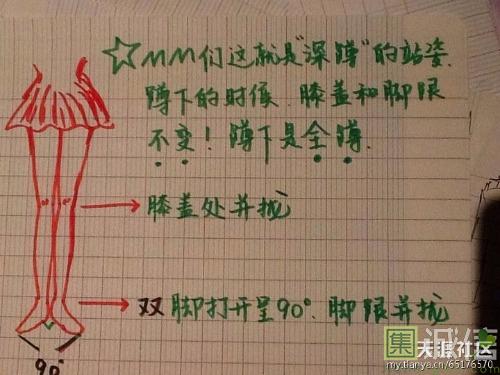 ☆MM们这就是"深蹲"的站姿.
蹲下的时候.膝盖和脚跟
不变!蹲下是全蹲.
膝盖处并拢
双脚打开呈90°.脚跟并拢
90°
集
天涯社区
my.tianya.cn/65176570